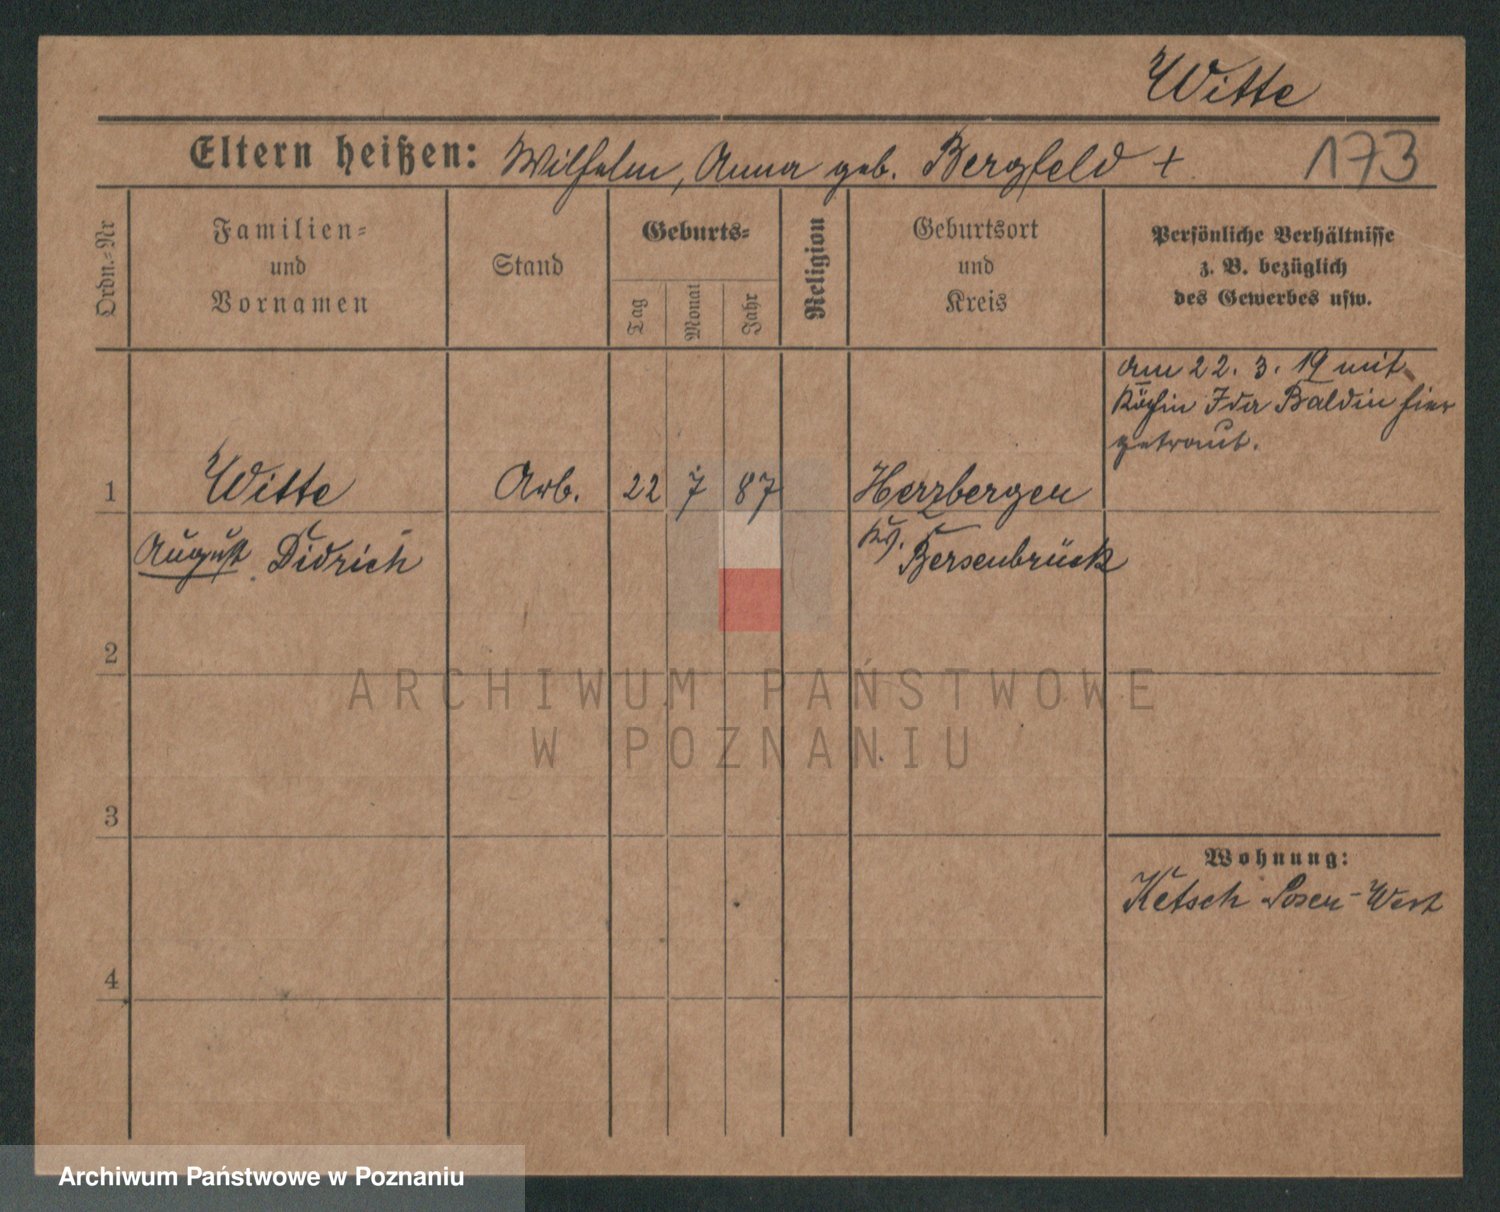 Witte
Eltern heißen: Wilhelm, Anna geb. Bergfeld +
173
Ordn.=Nr
Familien=
und
Vornamen
Stand
Geburts=
Tag
Monat
Jahr
Religion
Geburtsort
und
Kreis
Persönliche Verhältnisse
z. B. bezüglich
des Gewerbes usw.
am 22. 3. 19 mit
Köchin Ida Baldin hier
getraut.
1 Witte Arb. 22 7 87 Herzbergen
August Didrich Krs. Bersenbrück
2
3
4
Wohnung:
Ketsch Posen-West
ARCHIWUM PAŃSTWOWE
W POZNANIU
Archiwum Państwowe w Poznaniu